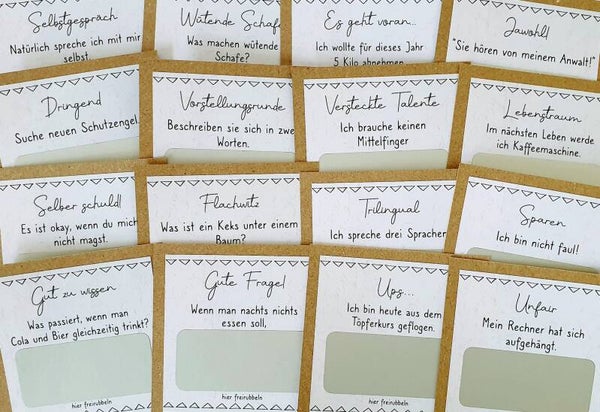 Selbstgespräch
Natürlich spreche ich mit mir
selbst.
Wütende Schafe
Was machen wütende
Schafe?
Es geht voran...
Ich wollte für dieses Jahr
5 Kilo abnehmen
Jawohl!
"Sie hören von meinem Anwalt!"
Dringend
Suche neuen Schutzengel.
Vorstellungsrunde
Beschreiben sie sich in zwei
Worten.
Versteckte Talente
Ich brauche keinen
Mittelfinger
Lebenstraum
Im nächsten Leben werde
ich Kaffeemaschine.
Selber schuld!
Es ist okay, wenn du mich
nicht magst.
Flachwitz
Was ist ein Keks unter einem
Baum?
Trilingual
Ich spreche drei Sprachen
Sparen
Ich bin nicht faul!
Gut zu wissen
Was passiert, wenn man
Cola und Bier gleichzeitig trinkt?
hier freirubbeln
Gute Frage!
Wenn man nachts nichts
essen soll,
hier freirubbeln
Ups...
Ich bin heute aus dem
Töpferkurs geflogen.
hier freirubbeln
Unfair
Mein Rechner hat sich
aufgehängt.
hier freirubbeln